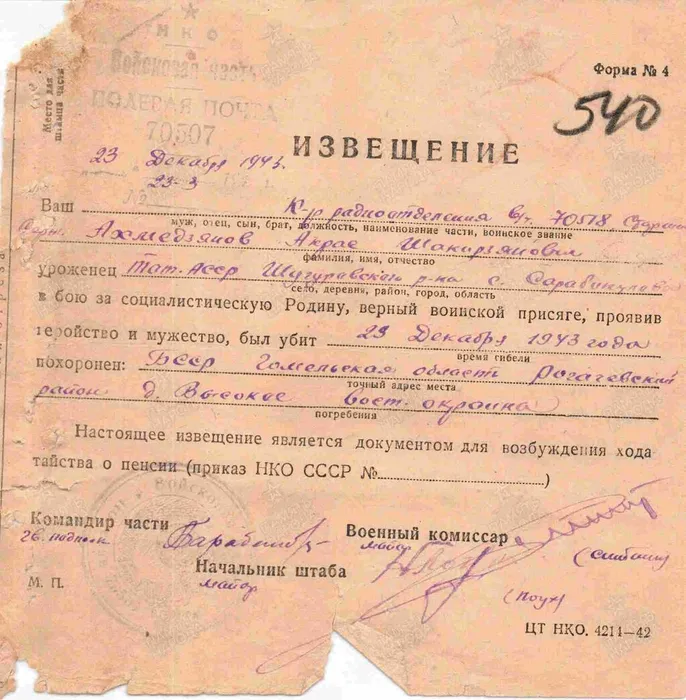 НКО
Войсковая часть
ПОЛЕВАЯ ПОЧТА
70507
Место для
штампа части
Форма № 4
540
23 Декабря 1943.
№
ИЗВЕЩЕНИЕ
Ваш К-р радиоотделения в/ч. 70518
муж, отец, сын, брат, должность, наименование части, воинское звание
Ахмедзянов Акрас Шакирзянович
фамилия, имя, отчество
уроженец Тат. АССР Шугуровского р-на с. Сарабикулово
село, деревня, район, город, область
в бою за социалистическую Родину, верный воинской присяге, проявив
геройство и мужество, был убит 23 Декабря 1943 года
время гибели
похоронен: БССР Гомельская область Рогачевский
точный адрес места
район д. Высокое Вост. окраина
погребения
Настоящее извещение является документом для возбуждения хода
тайства о пенсии (приказ НКО СССР № )
Командир части
Военный комиссар
майор
Начальник штаба
майор
М. П.
ЦТ НКО. 4211—42